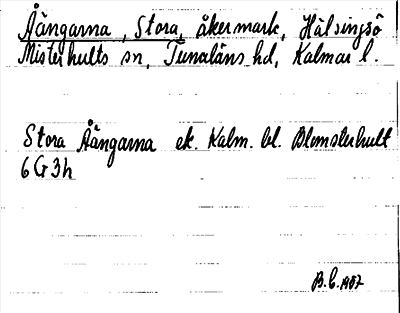 Åängarna, Stora, åkermark, Hälsingsö
Misterhults sn, Tunaläns hd, Kalmar l.
Stora Åängarna ek. Kalm. bl. Blomsterhult
6G3h
B.C. 1957